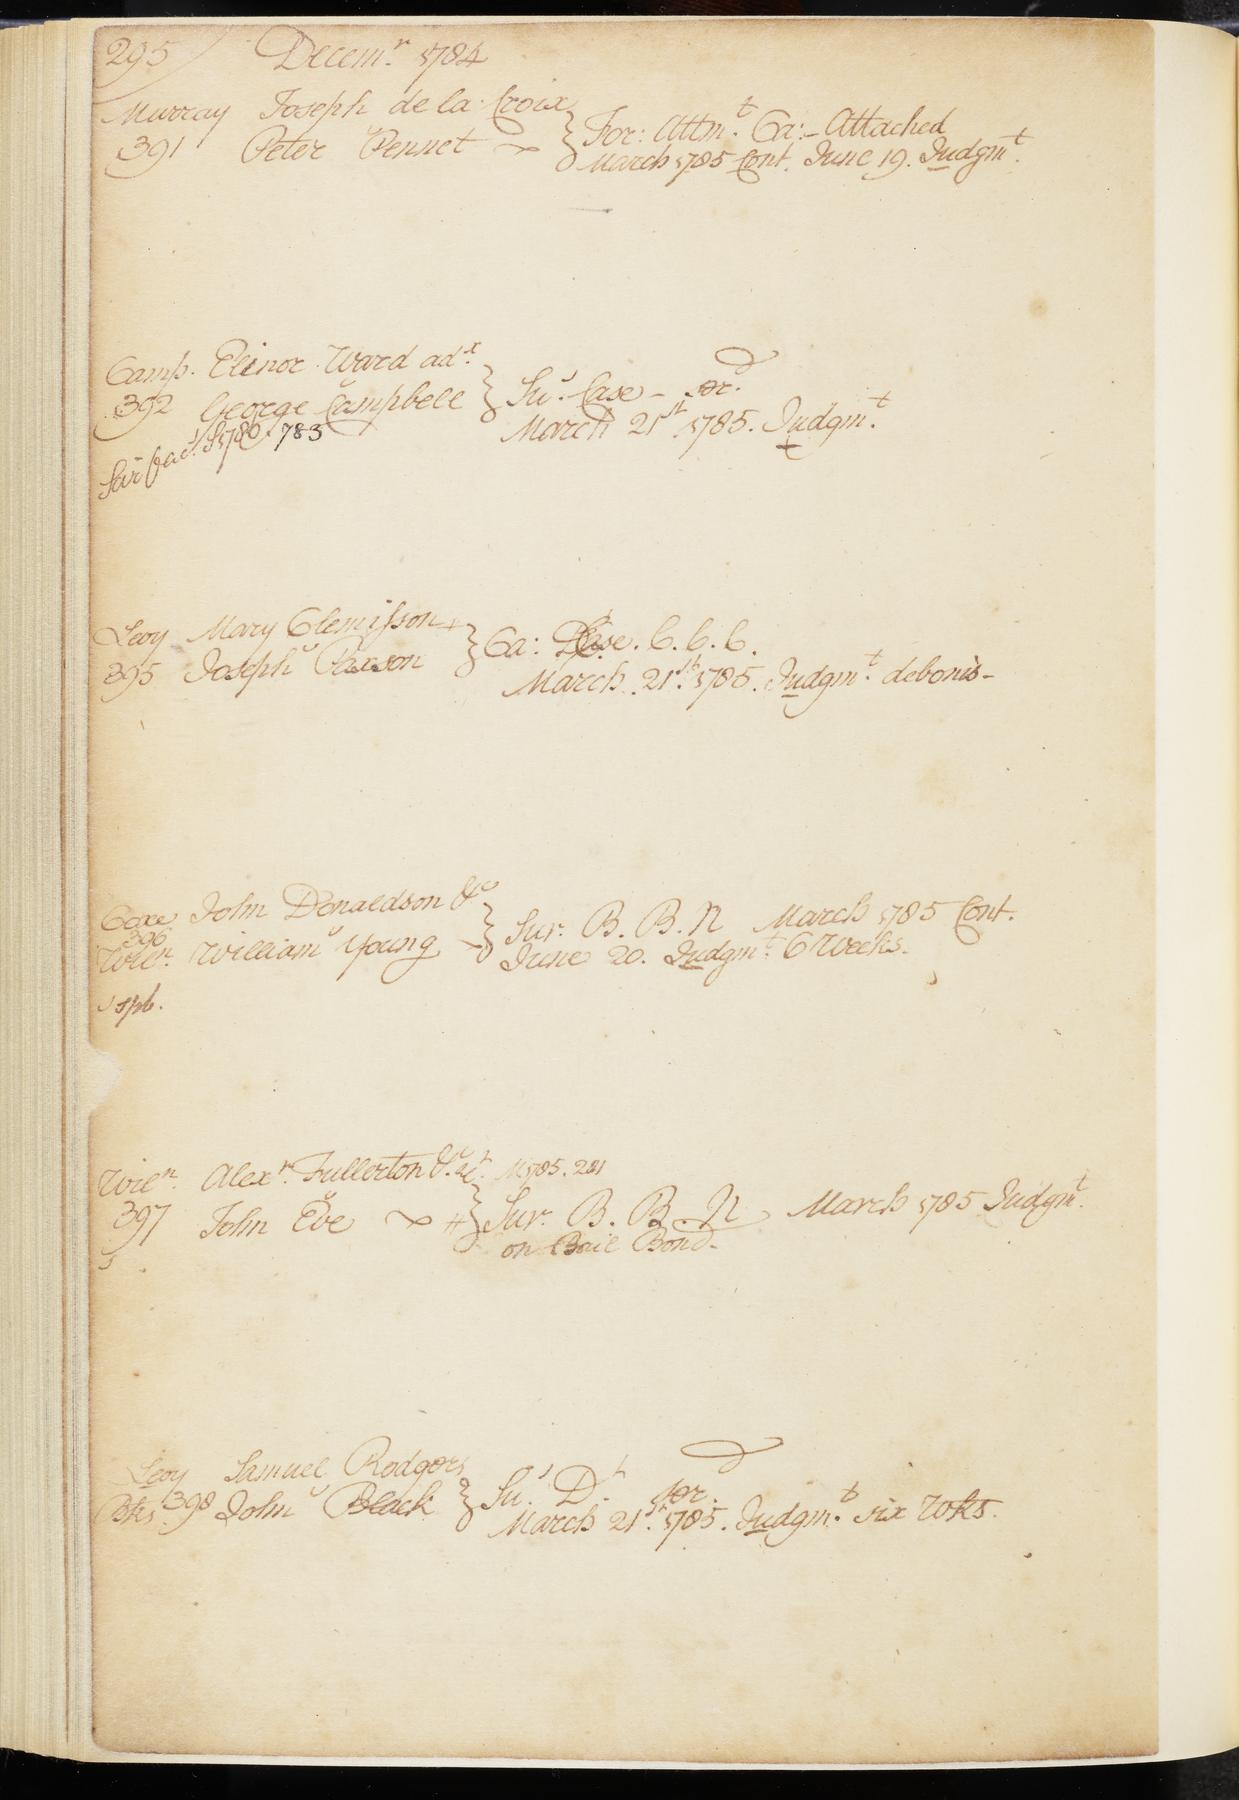 295 Decem.r 1784
Murray Joseph de la Croix
391 Peter Pennet
} For: Attm.t Ca:- Attached
March 1785 Cont. June 19. Judgm.t
Camp. Elinor Ward ad.x
392 George Campbell
} Su.s Case - or.
March 21st. 1785. Judgm.t
783
Levy Mary Clemisson +
395 Joseph Paxson
} Ca: Case. C. C. C.
March 21st. 1785. Judgm.t debonis-
Coxe John Donaldson &c
396
Wil.n William Young
} Sur. B. B. N March 1785 Cont.
June 20. Judgm.t 6 Weeks.
Wil.n Alex.r Fullerton &c. M 1785. 221
397 John Eve
#} Sur. B. B. N March 1785 Judgm.t
on Bail Bond-
Levy Samuel Rodgers
398 John Black
} Su.s D.t or.
March 21st. 1785. Judgm.t six Wks.